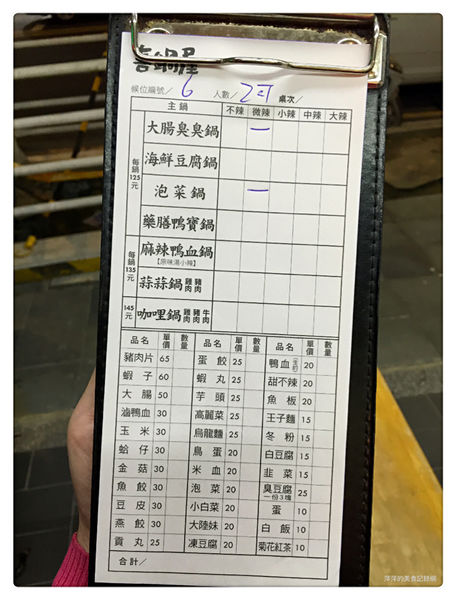 喜鍋屋
候位編號／ 6 人數／ 2 桌次／
主鍋 不辣 微辣 小辣 中辣 大辣
每鍋125元
大腸臭臭鍋 一
海鮮豆腐鍋
泡菜鍋 一
藥膳鴨寶鍋
每鍋135元
麻辣鴨血鍋
【原味湯小辣】
蒜蒜鍋 雞肉 豬肉
145元
咖哩鍋 雞肉 豬肉 牛肉
品名 單價 數量 品名 單價 數量 品名 單價 數量
豬肉片 65 蛋餃 25 鴨血 20
蝦子 60 蝦丸 25 甜不辣 20
大腸 50 芋頭 25 魚板 20
滷鴨血 30 高麗菜 25 王子麵 15
玉米 30 烏龍麵 25 冬粉 15
蛤仔 30 鳥蛋 20 白豆腐 15
金菇 30 米血 20 韭菜 15
魚餃 30 泡菜 20 臭豆腐 一份3塊 25
豆皮 30 小白菜 20 蛋 10
燕餃 30 大陸妹 20 白飯 10
貢丸 25 凍豆腐 20 菊花紅茶 10
合計／
萍萍的美食記錄網